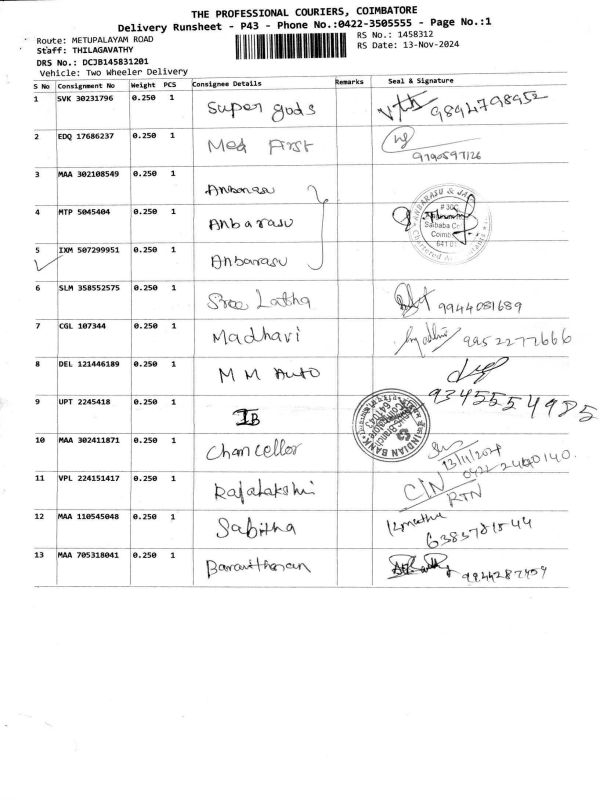 THE PROFESSIONAL COURIERS, COIMBATORE
Delivery Runsheet - P43 - Phone No.:0422-3505555 - Page No.:1
Route: METUPALAYAM ROAD RS No.: 1458312
Staff: THILAGAVATHY RS Date: 13-Nov-2024
DRS No.: DCJB145831201
Vehicle: Two Wheeler Delivery
S No Consignment No Weight PCS Consignee Details Remarks Seal & Signature
1 SVK 30231796 0.250 1 Super gods 9894798952
2 EDQ 17686237 0.250 1 Med First 9790597126
3 MAA 302108549 0.250 1 Anbarasu
4 MTP 5045404 0.250 1 Anbarasu
5 IXM 507299951 0.250 1 Anbarasu
ANBARASU & JA
# 30C
Saibaba Co
Coimb
641 0
Chartered Accountants
6 SLM 358552575 0.250 1 Sree Latha 9944081689
7 CGL 107344 0.250 1 Madhavi 9952277666
8 DEL 121446189 0.250 1 M M Auto 9345554985
9 UPT 2245418 0.250 1 IB
INDIAN BANK
10 MAA 302411871 0.250 1 Chancellor 13/11/2024
0422-2400140.
11 VPL 224151417 0.250 1 Rajalakshi C/N
RTN
12 MAA 110545048 0.250 1 Sabitha 6385781544
13 MAA 705318041 0.250 1 9944287459